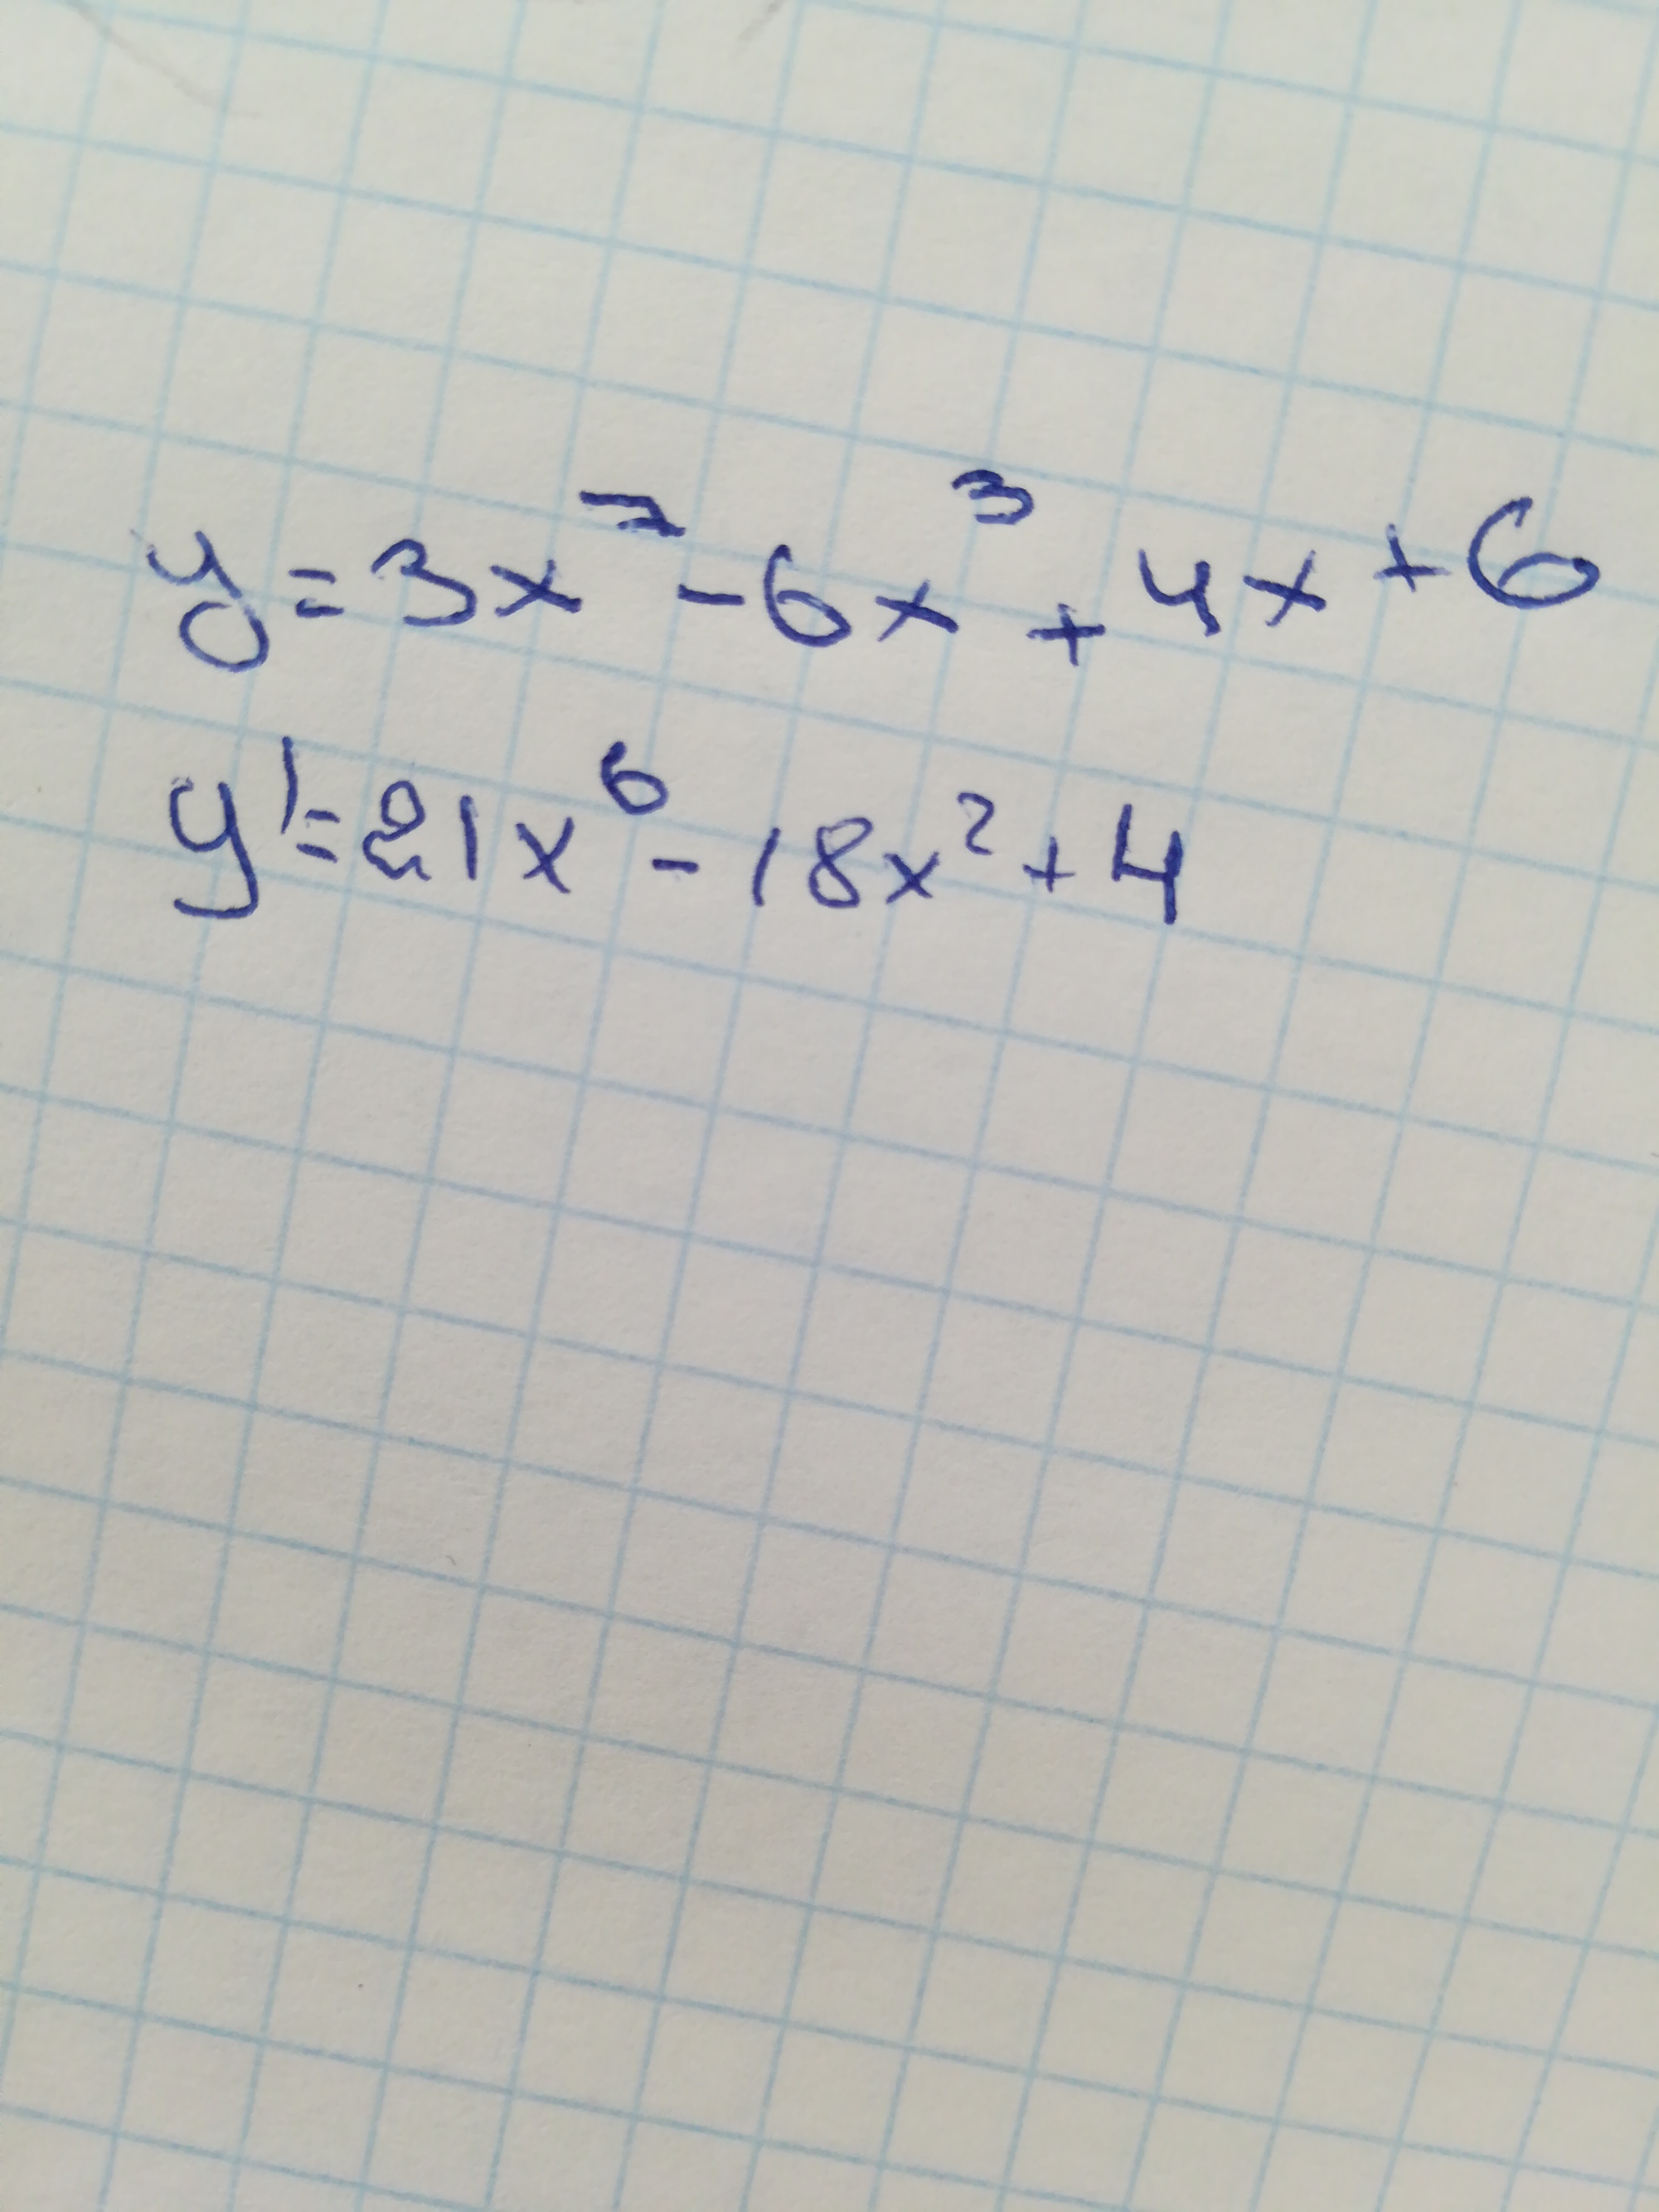 y = 3x⁷ - 6x³ + 4x + 6
y' = 21x⁶ - 18x² + 4